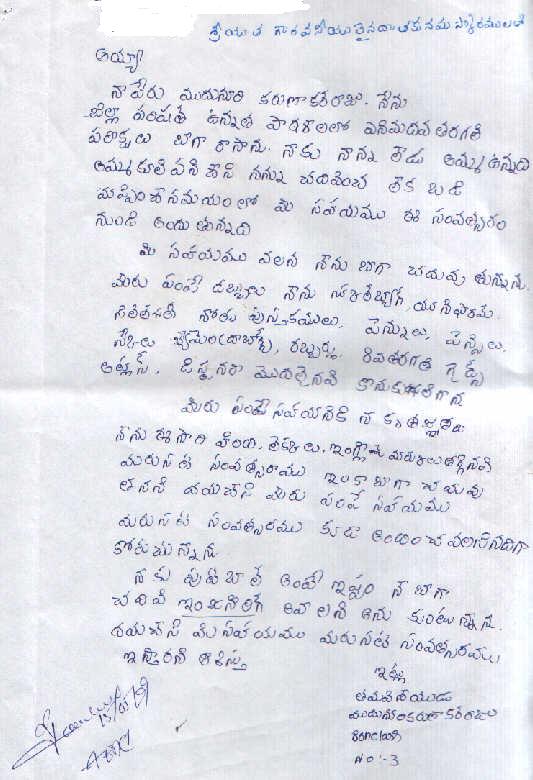 శ్రీయుత గౌరవనీయులైన దాతకు నమస్కారములతో
అయ్యా
నా పేరు ముదునూరి కరుణాకరరాజు. నేను
జిల్లా పరిషత్ ఉన్నత పాఠశాలలో ఎనిమిదవ తరగతి
పరీక్షలు బాగా రాసాను. నాకు నాన్న లేడు అమ్మ ఉన్నది
అమ్మ కూలి పని చేసి నన్ను చదివించ లేక బడి
సమయంలో మీ సహయము ఈ సంవత్సరం
నుండి అందుతున్నది
మీ సహయము వలన నేను బాగా చదువుతున్నాను.
మీరు పంపే డబ్బులు నేను స్కూల్ బ్యాగ్, యూనిఫారమ్,
నోటు పుస్తకములు, పెన్నులు, పెన్సిల్లు,
స్కేలు, రబ్బర్లు, గైడ్స్
అట్లాస్, డిక్షనరీ మొదలైనవి కొనుక్కోగలిగాను
మీరు పంపే సహయనికి నా కృతజ్ఞతలు
నేను ఈసారి హింది, లెక్కలు, ఇంగ్లీషు మార్కులు తగ్గినవి
మరుసటి సంవత్సరాము ఇంకా బాగా చదువు
తానని దయచేసి మీరు పంపే సహయము
మరుసటి సంవత్సరము కూడా అందించవలసినదిగా
కోరుచున్నాను
నాకు ఫుట్ బాల్ అంటే ఇష్టం నే బాగా
చదివి ఇంజనీరింగ్ అవ్వాలని అను కుంటున్నాను.
దయచేసి మీ సహయము మరుసటి సంవత్సరము
ఇస్తారని ఆశిస్తు
ఇట్లు
తమ విదేయుడు
ముదునూరి కరుణాకరరాజు
no:-3